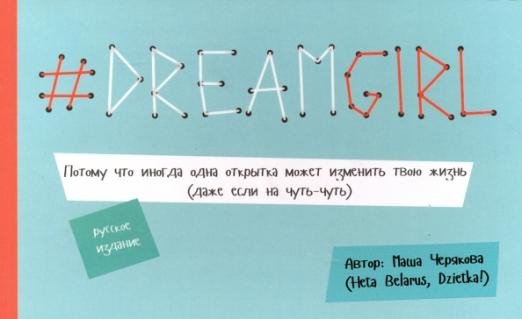 #DREAMGIRL
Потому что иногда одна открытка может изменить твою жизнь
(даже если на чуть-чуть)
русское
издание
Автор: Маша Черякова
(Heta Belarus, Dzietka!)